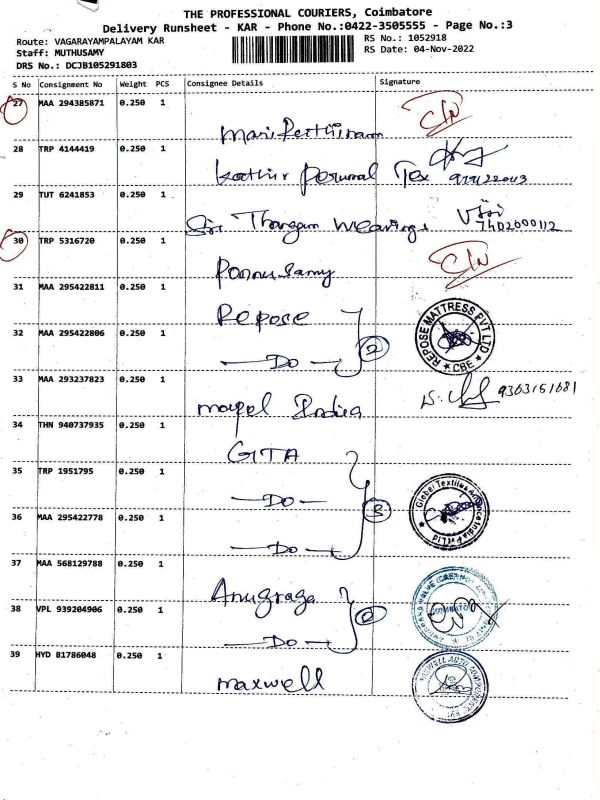 THE PROFESSIONAL COURIERS, Coimbatore
Delivery Runsheet - KAR - Phone No.:0422-3505555 - Page No.:3
Route: VAGARAYAMPALAYAM KAR
RS No.: 1052918
Staff: MUTHUSAMY
RS Date: 04-Nov-2022
DRS No.: DCJB105291803
S No Consignment No Weight PCS Consignee Details Signature
27 MAA 294385871 0.250 1
28 TRP 4144419 0.250 1 Perumal Tex
29 TUT 6241853 0.250 1 Sri Thangam Weavings
7402000112
30 TRP 5316720 0.250 1 Ponnusamy
31 MAA 295422811 0.250 1 Repose REPOSE MATTRESS PVT LTD
CBE
32 MAA 295422806 0.250 1 —Do— 2
33 MAA 293237823 0.250 1 India 9363151681
34 THN 940737935 0.250 1 GITA
35 TRP 1951795 0.250 1 —Do— 3 Global Textile Alliance India Pvt Ltd
36 MAA 295422778 0.250 1 —Do—
37 MAA 568129788 0.250 1 Anugraga
38 VPL 939204906 0.250 1 —Do— 2
39 HYD 81786048 0.250 1 Maxwell